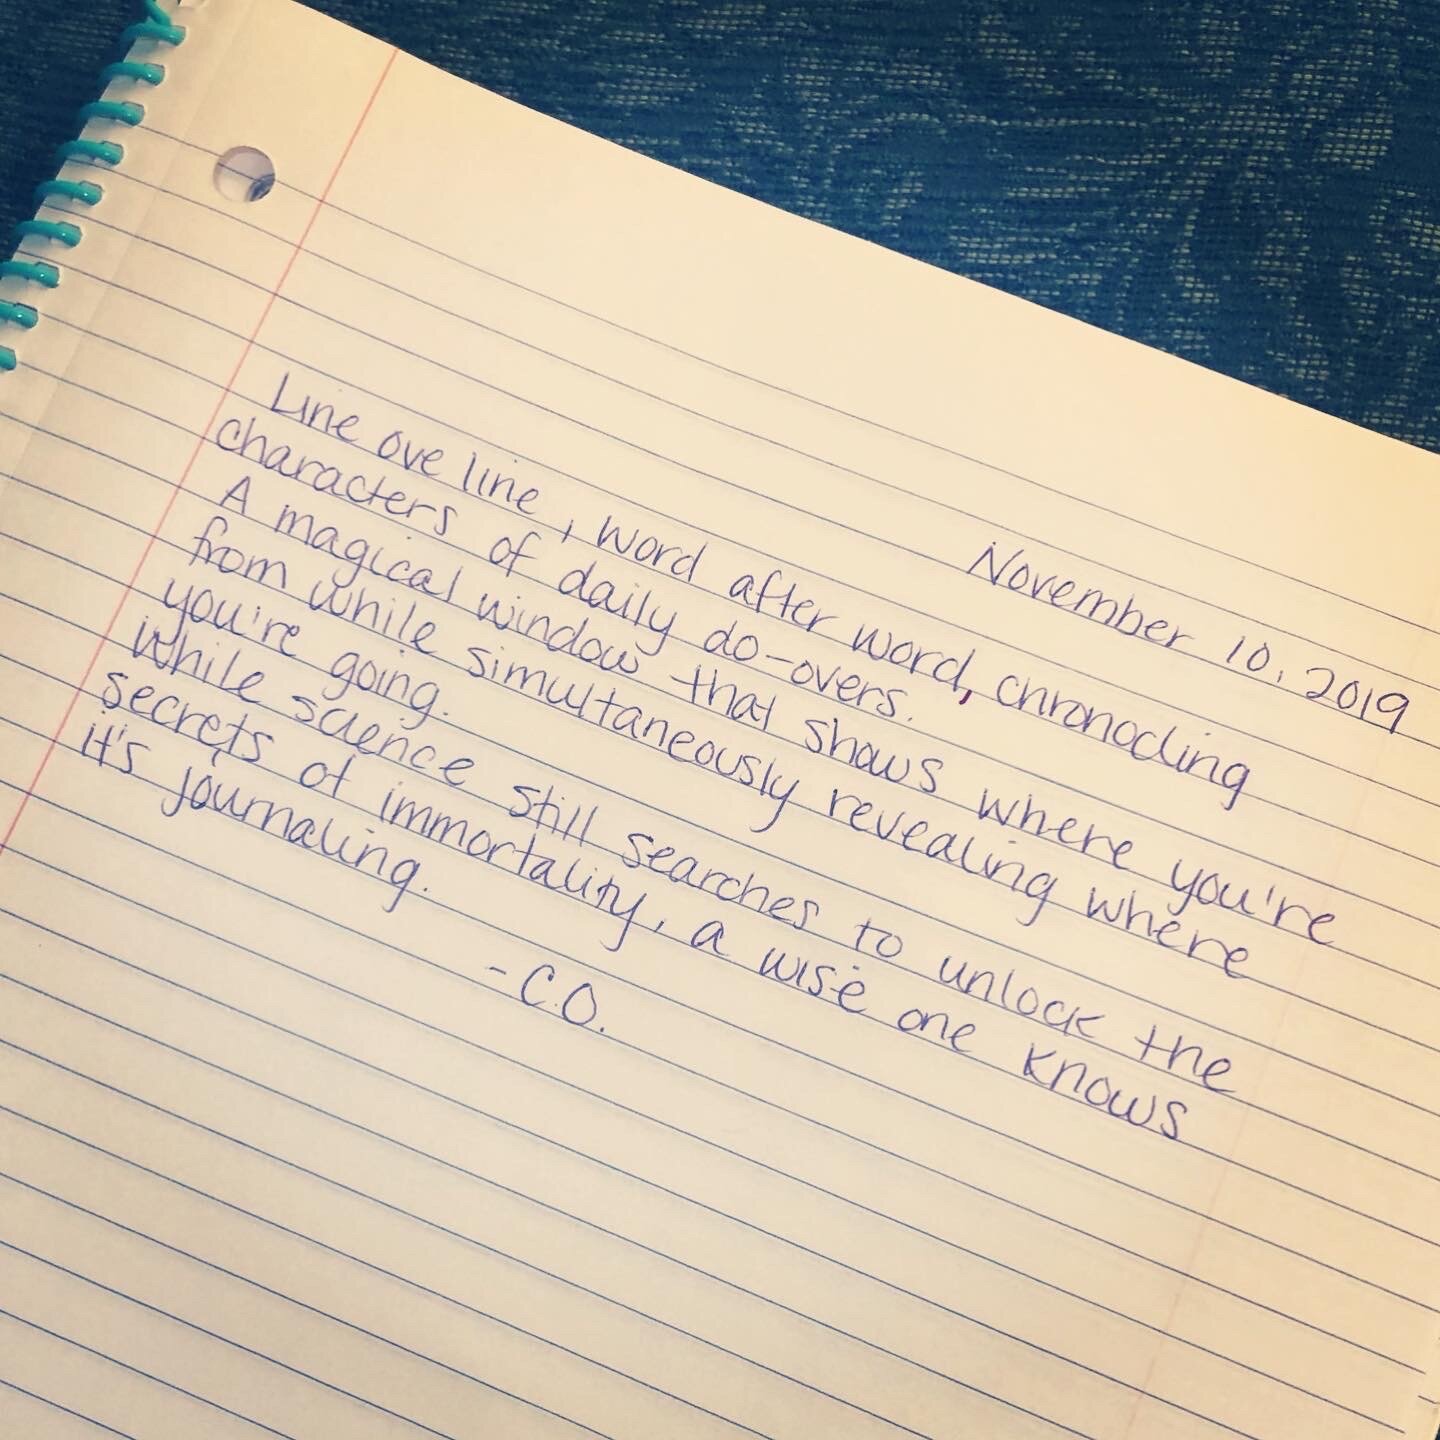 November 10, 2019
Line ove line, word after word, chronocling
characters of daily do-overs.
A magical window that shows where you're
from while simultaneously revealing where
you're going.
While science still searches to unlock the
secrets of immortality, a wise one knows
it's journaling.
-C.O.